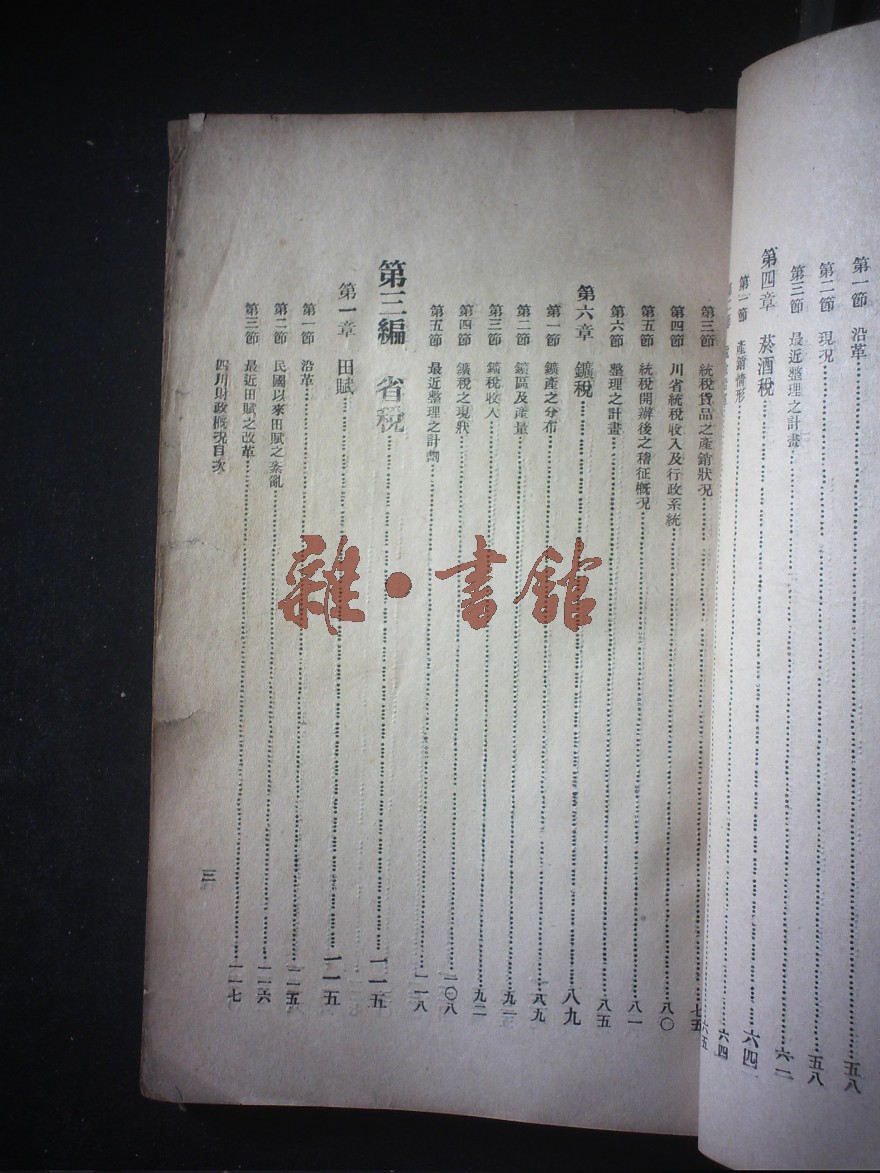 第一節　沿革……五八
第二節　現況……五八
第三節　最近整理之計畫……六二
第四章　菸酒稅……六四
第一節　產銷情形……六四
六五
第三節　統稅貨品之產銷狀况……七五
第四節　川省統稅收入及行政系統……八〇
第五節　統稅開辦後之稽征概况……八一
第六節　整理之計畫……八五
第六章　鑛稅……八九
第一節　鑛產之分布……八九
第二節　鑛區及產量……九一
第三節　鑛稅收入……九二
第四節　鑛稅之現狀……一〇八
第五節　最近整理之計劃……一一八
第三編　省稅……一一五
第一章　田賦……一一五
第一節　沿革……一一五
第二節　民國以來田賦之紊亂……一一六
第三節　最近田賦之改革……一一七
四川財政概况目次
三
雜·書館